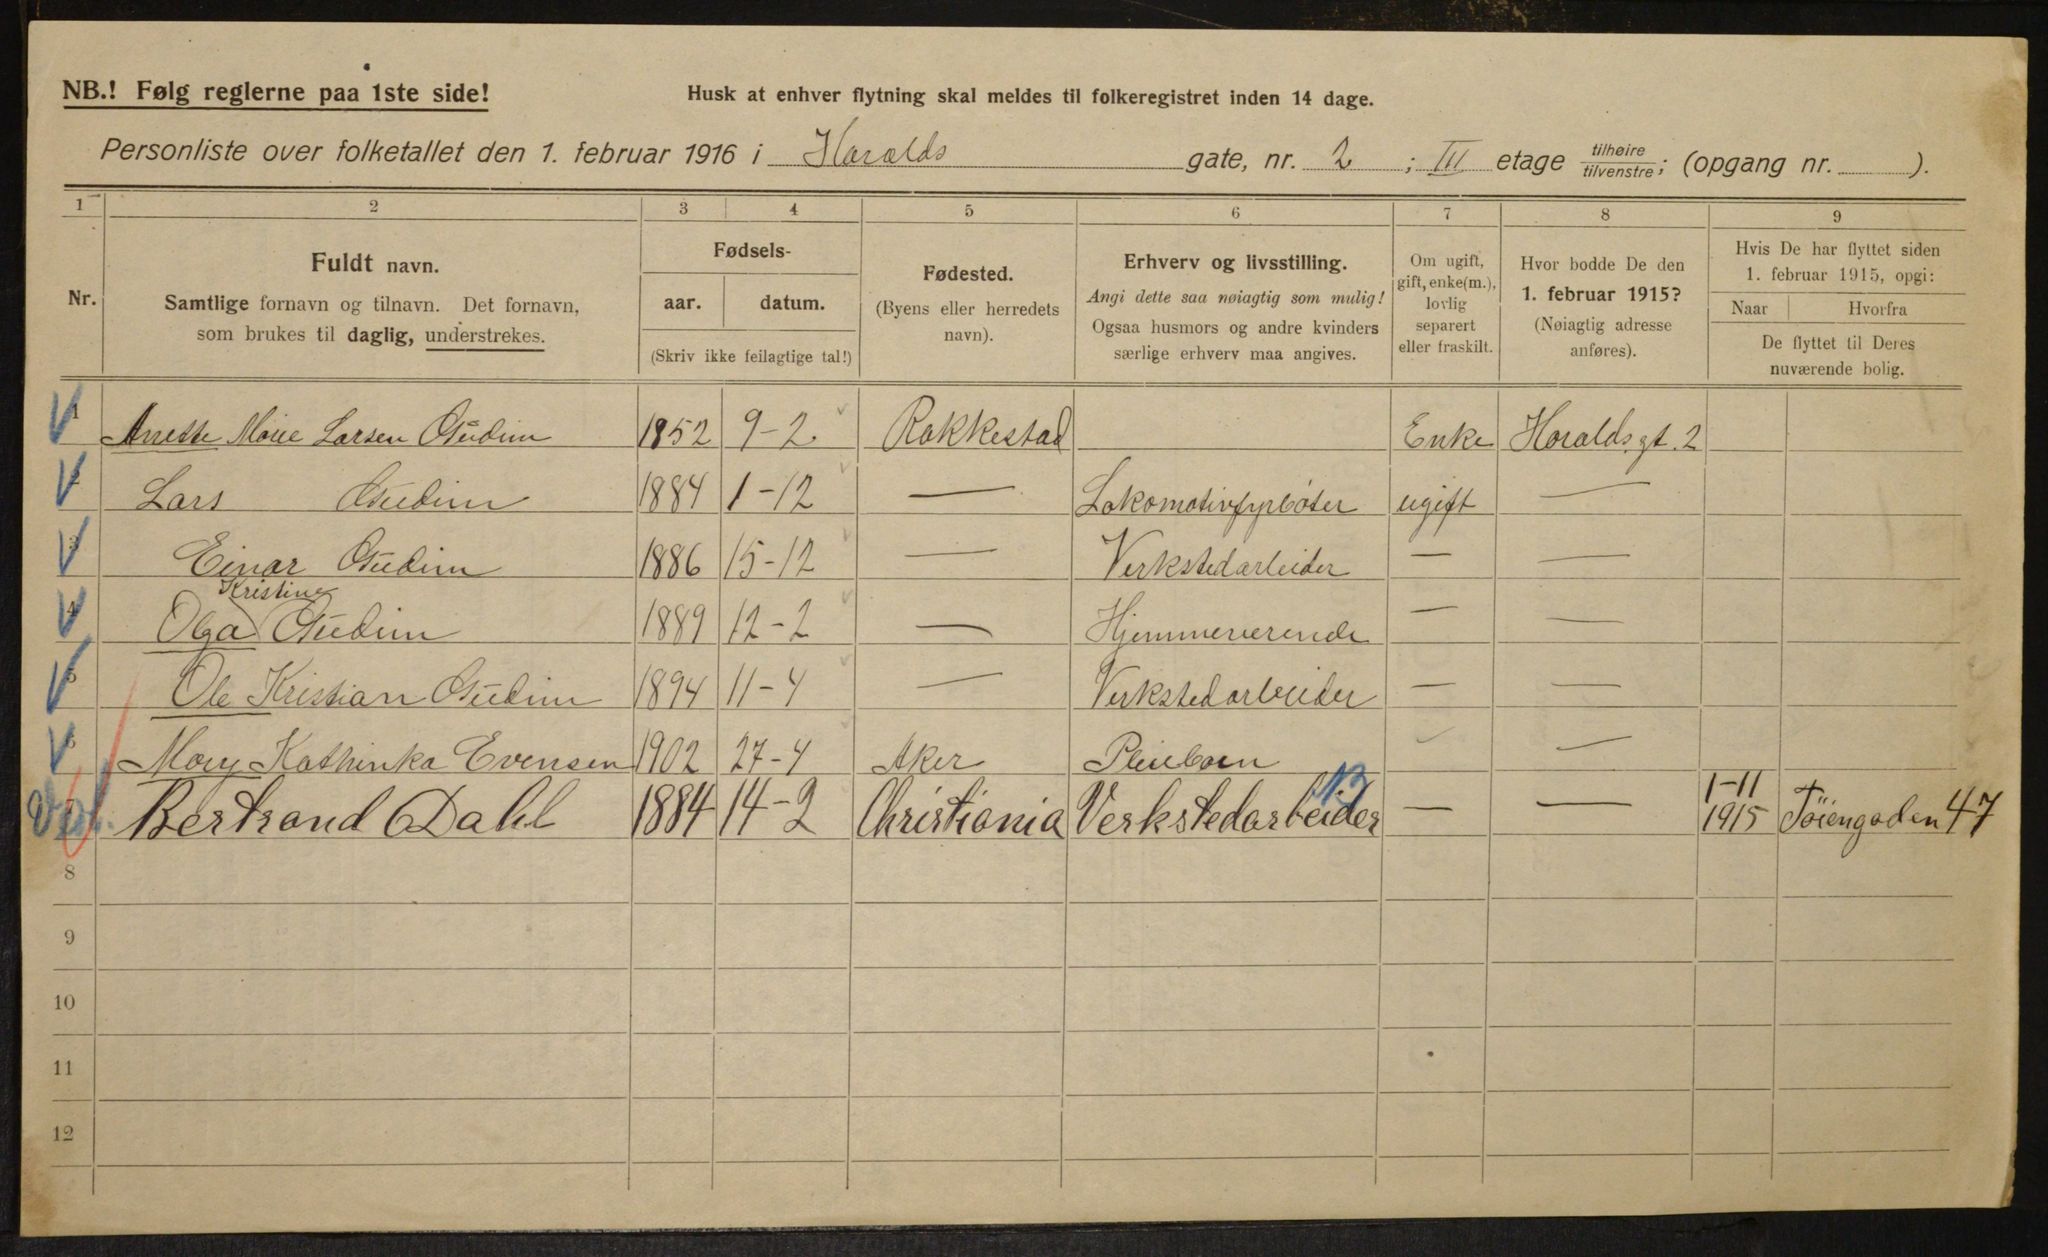 NB.! Følg reglerne paa 1ste side!
Husk at enhver flytning skal meldes til folkeregistret inden 14 dage.
Personliste over folketallet den 1. februar 1916 i Haralds gate, nr. 2 ; III etage tilhøire tilvenstre ; (opgang nr. ).
1 2 3 4 5 6 7 8 9
Nr.
Fuldt navn.
Samtlige fornavn og tilnavn. Det fornavn,
som brukes til daglig, understrekes.
Fødsels-
aar. datum.
(Skriv ikke feilagtige tal!)
Fødested.
(Byens eller herredets
navn).
Erhverv og livsstilling.
Angi dette saa nøiagtig som mulig!
Ogsaa husmors og andre kvinders
særlige erhverv maa angives.
Om ugift,
gift, enke(m.),
lovlig
separert
eller fraskilt.
Hvor bodde De den
1. februar 1915?
(Nøiagtig adresse
anføres).
Hvis De har flyttet siden
1. februar 1915, opgi:
Naar Hvorfra
De flyttet til Deres
nuværende bolig.
1 Anette Marie Larsen Gudim 1852 9-2 Rakkestad Enke Haralds.gt. 2
2 Lars Gudim 1884 1-12 — Lokomotivfyrbøter ugift —
3 Einar Gudim 1886 15-12 — Verkstedarbeider — —
Kristine
4 Olga Gudim 1889 12-2 — Hjemmeverende — —
5 Ole Kristian Gudim 1894 11-4 — Verkstedarbeider — —
6 Mary Kathinka Evensen 1902 27-4 Aker Pleiebarn —
Bertrand Dahl 1884 14-2 Christiania Verkstedarbeider — — 1-11 1915 Töiengaden 47
8
9
10
11
12